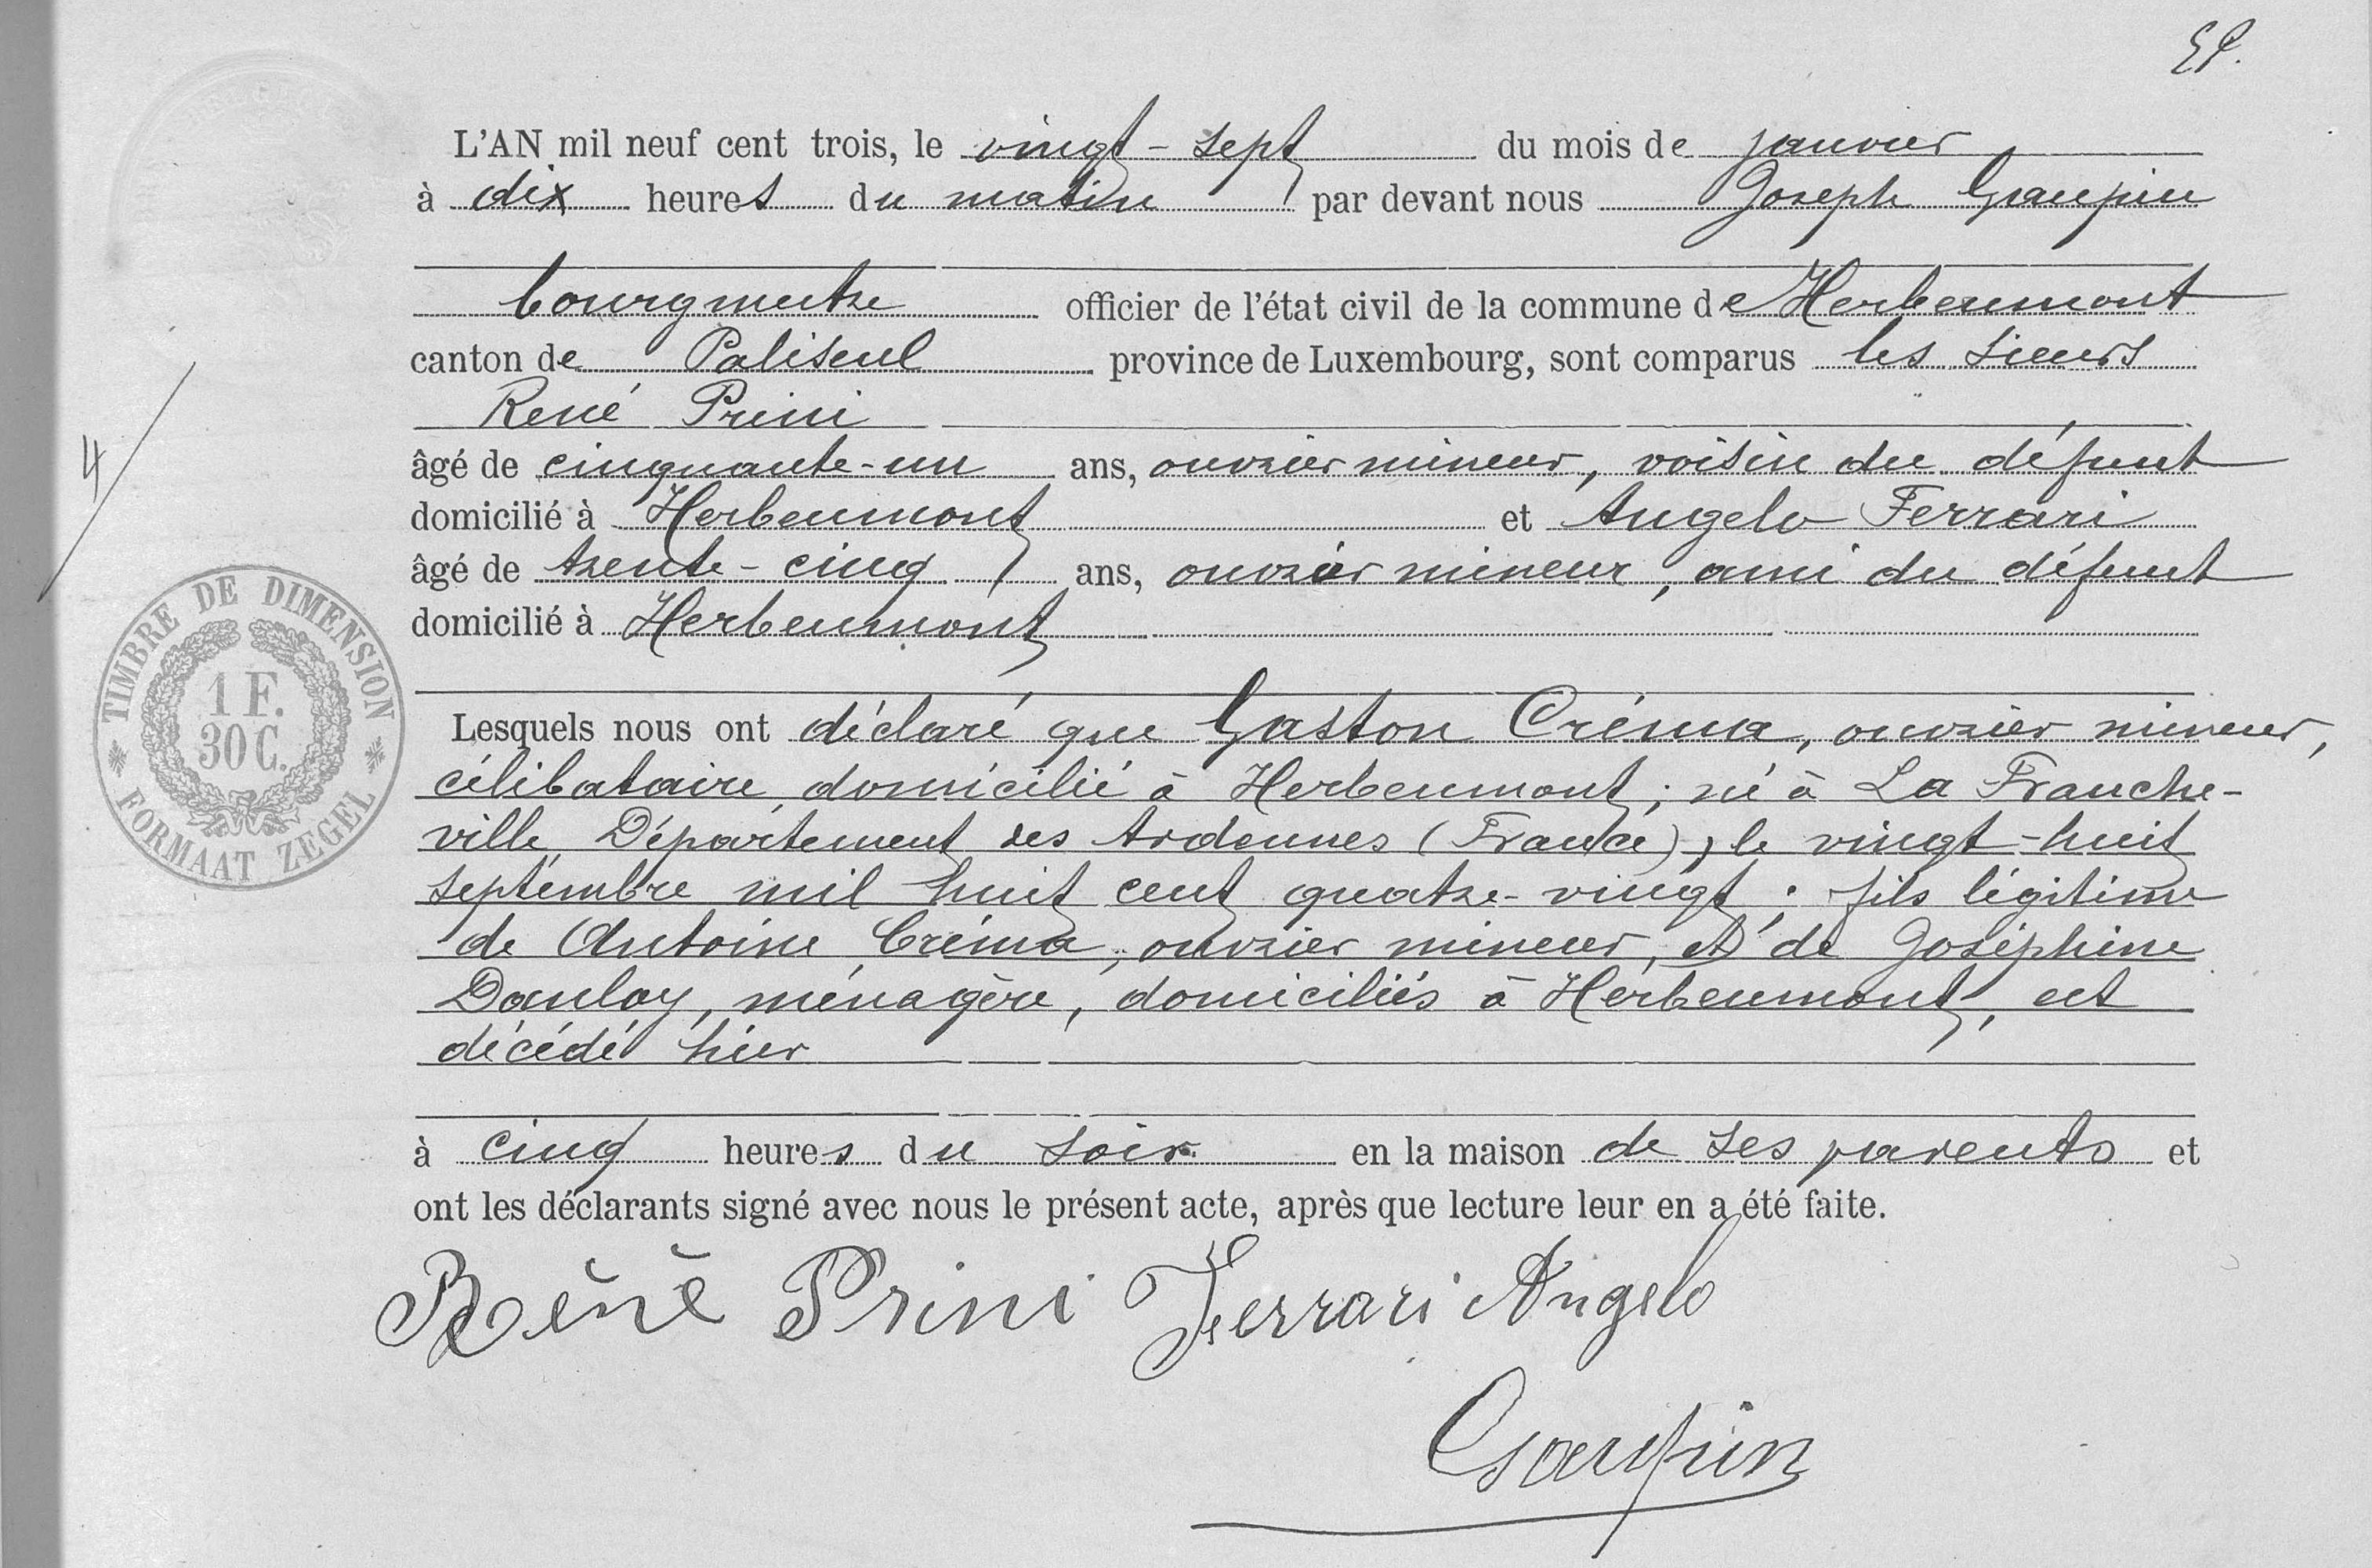 L'AN mil neuf cent trois, le vingt-sept du mois de janvier
à dix heures du matin par devant nous Joseph Graupin
bourgmestre officier de l'état civil de la commune de Herbeumont
canton de Paliseul province de Luxembourg, sont comparus les sieurs
René Prini
âgé de cinquante-un ans, ouvrier mineur, voisin du défunt
domicilié à Herbeumont et Angelo Ferrari
âgé de trente-cinq ans, ouvrier mineur, ami du défunt
domicilié à Herbeumont
4
TIMBRE DE DIMENSION
1 F.
30 C.
FORMAAT ZEGEL
Lesquels nous ont déclaré que Gaston Créma, ouvrier mineur,
célibataire, domicilié à Herbeumont; né à La Franche-
ville, Département des Ardennes (France), le vingt-huit
septembre mil huit cent quatre-vingt; fils légitime
de Antoine Créma, ouvrier mineur, et de Joséphine
Dauloy, ménagère, domiciliés à Herbeumont, est
décédé hier
à cinq heures du soir en la maison de ses parents et
ont les déclarants signé avec nous le présent acte, après que lecture leur en a été faite.
Réné Prini Ferrari Angelo
Graupin